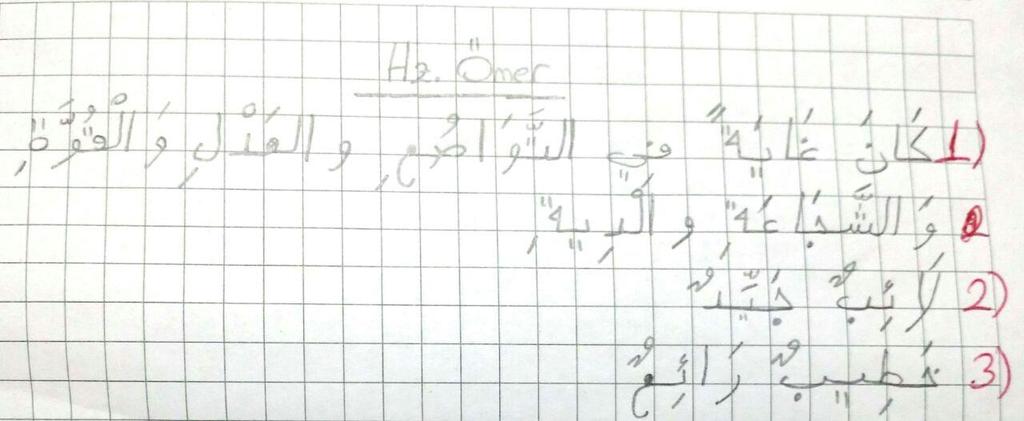 Hz. Ömer
1) كَانَ غَايَةً فِي التَّوَاضُعِ وَ العَدْلِ وَ الْقُوَّةِ
وَ الشَّجَاعَةِ وَ
2) كَاتِبٌ جَيِّدٌ
3) خَطِيبٌ رَائِعٌ